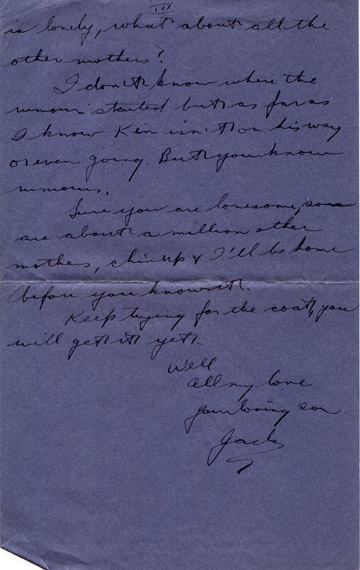 III
is lonely, what about all the
other mothers?
I don't know where the
rumour started but as far as
I know Ken isn't on his way
or even going. But you know
rumours.
Sure you are lonesome, so
are about a million other
mothers, chin up & I'll be home
before you know it.
Keep trying for the coat, you
will get it yet.
Well
all my love
your loving son
Jack